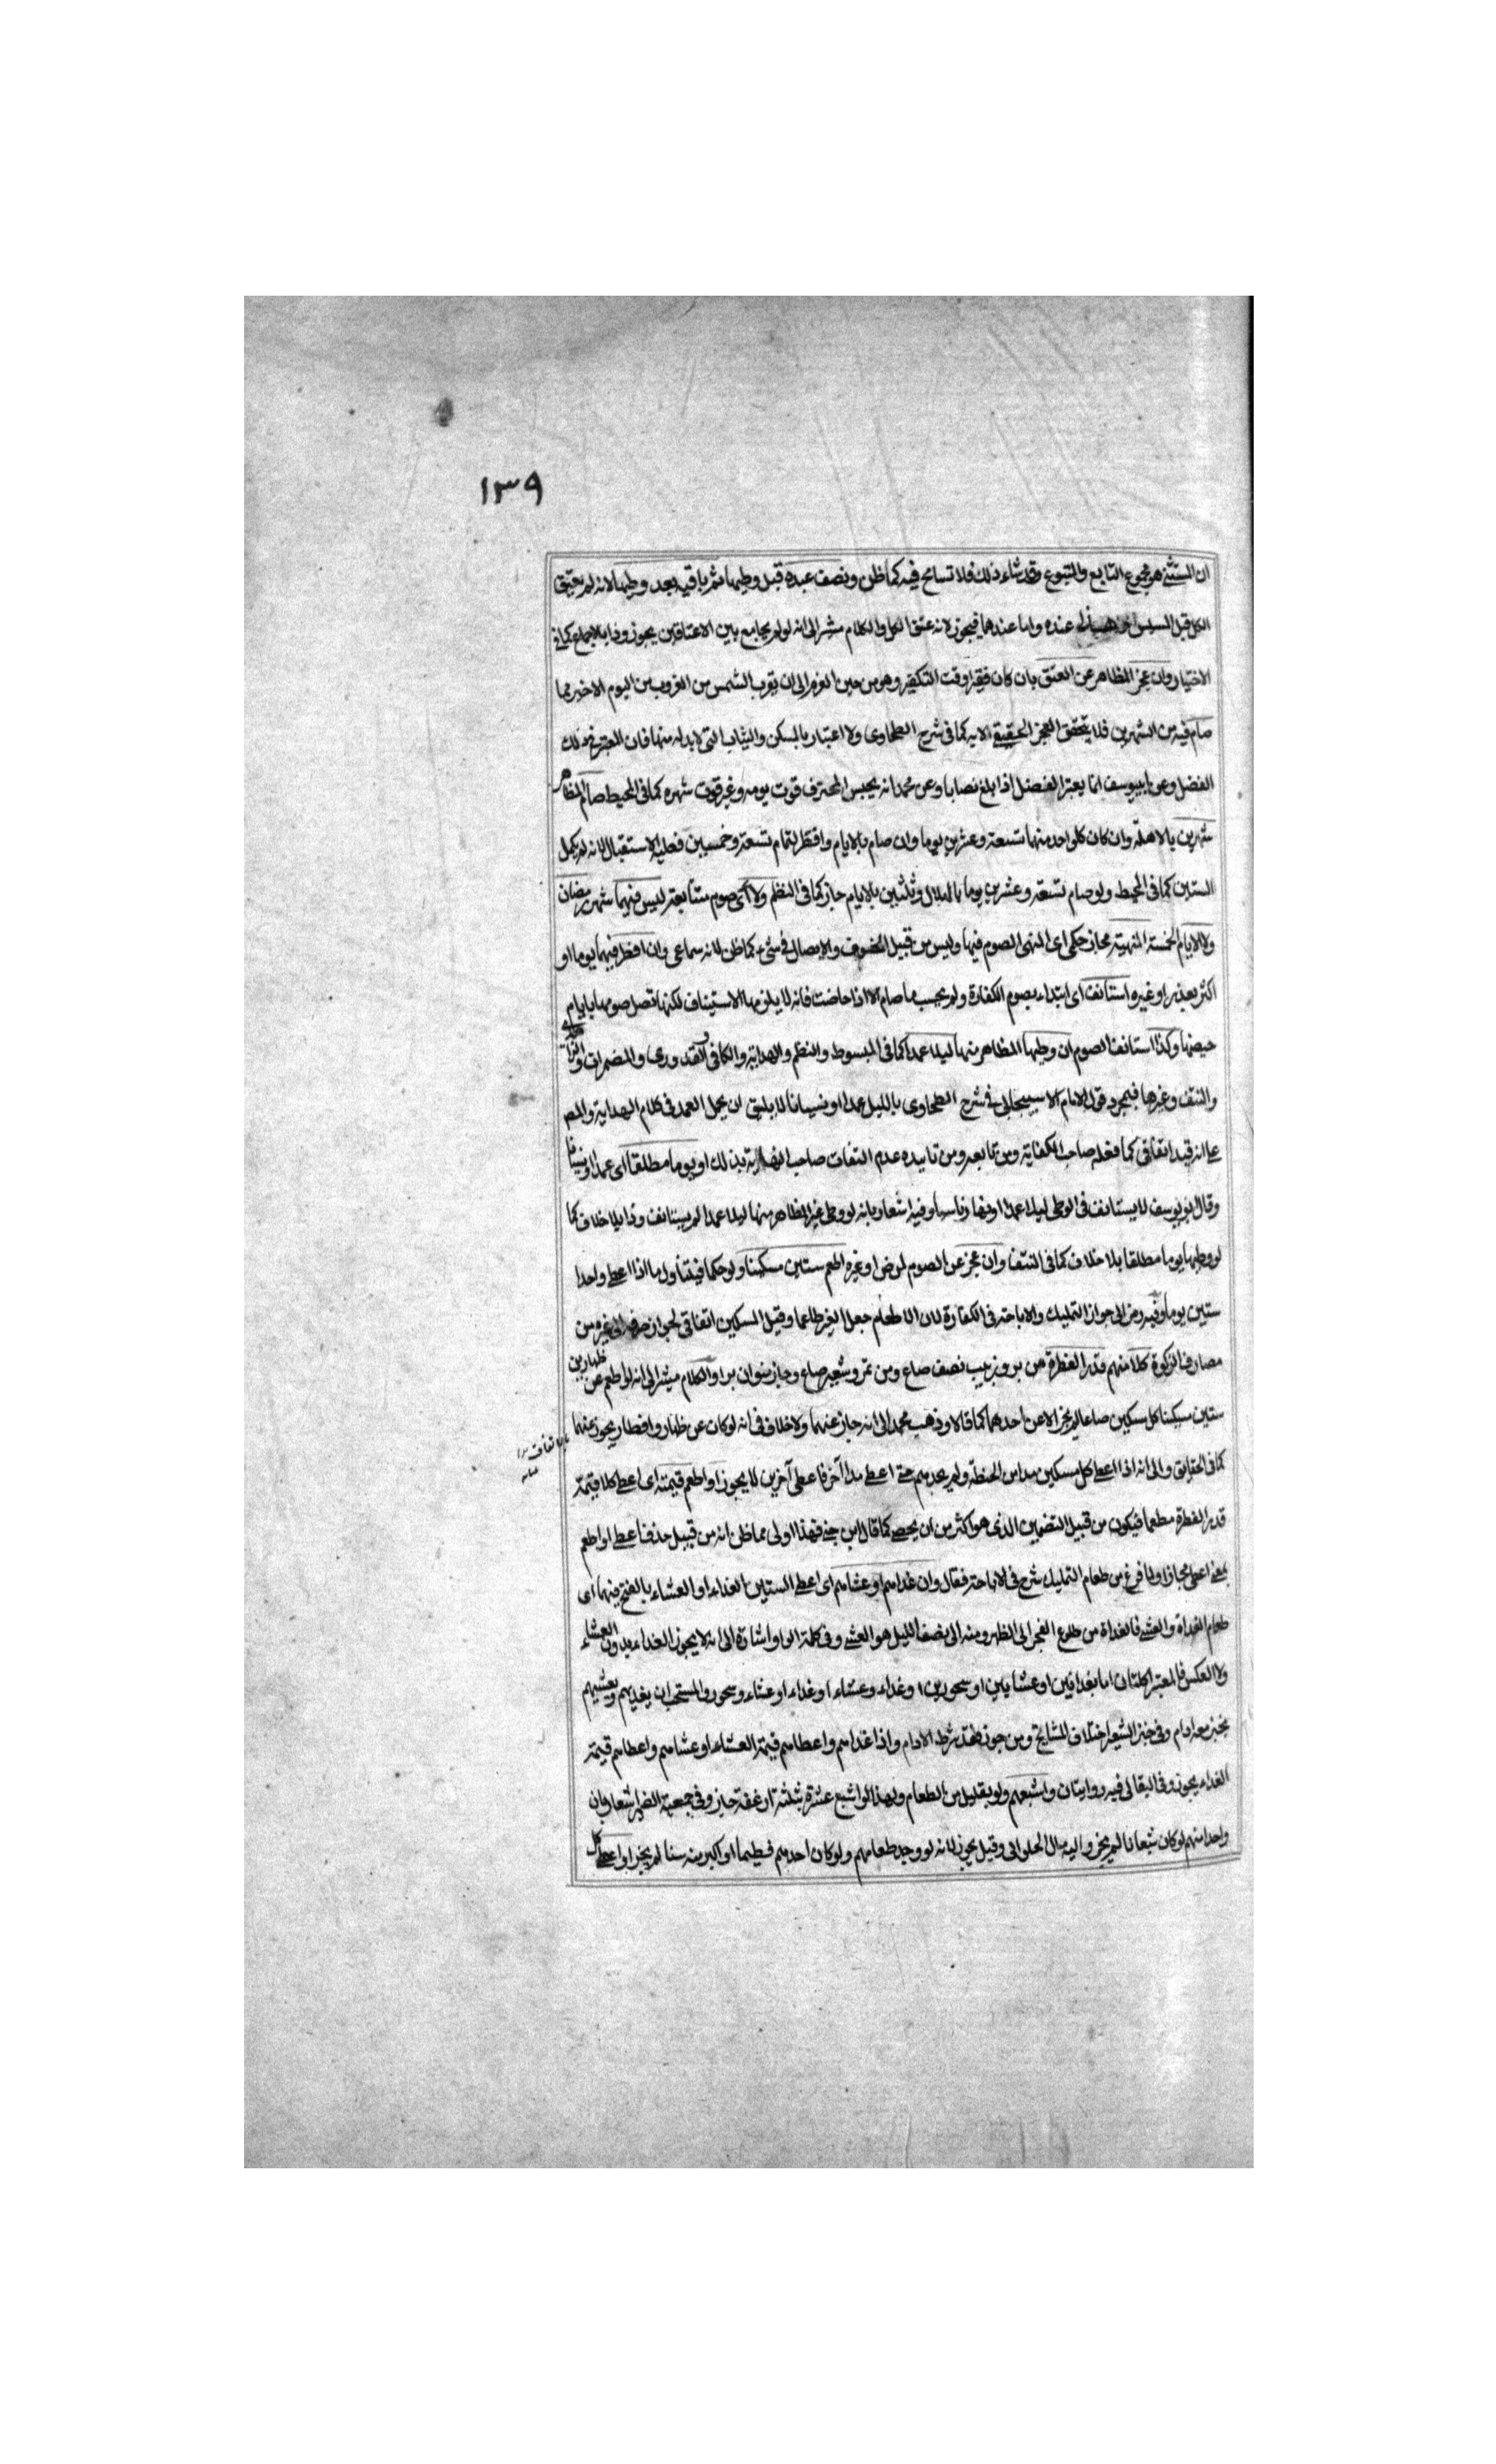 ١٣٩
ان المستثنى هو مجموع التابع والمتبوع وقد شاء ذلك فلا تسامح فيه كما ظن ونصف عبده قبل وطيها ثم باقيه بعد وطيها لانه لم يعتق
الكل قبل المسيس عنده واما عندهما فيجوز لانه عتق الكل والكلام مشير الى انه لو لم يجامع بين الاعتاقين يجوز وذا بالاجماع كما في
الاختيار وان عجز المظاهر عن العتق بان كان فقيرا وقت التكفير وهو من حين العزم الى ان يقرب الشمس من الغروب من اليوم الاخير مما
صام فيه من الشهرين فلا يتحقق العجز الحقيقي الا به كما في شرح الطحاوى ولا اعتبار بالمسكن والثياب التى لا بد له منها فان المعتبر في ذلك
الفضل وعن ابييوسف انما يعتبر الفضل اذا بلغ نصابا وعن محمد انه يحبس المحترف قوت يومه وغيره قوت شهره كما في المحيط صام المظاهر
شهرين بالاهلة وان كان كل واحد منهما تسعة وعشرين يوما وان صام بالايام وافطر لتمام تسعة وخمسين فعليه الاستقبال لانه لم يكمل
الستين كما في المحيط ولو صام تسعة وعشرين يوما بالهلال وثلثين بالايام جاز كما في النظم ولاء اى صوم متتابعة ليس فيهما شهر رمضان
ولا الايام الخمسة المنهية مجاز حكمى اى المنهى الصوم فيها وليس من قبيل الحذف والايصال في شىء كما ظن لانه سماعى وان افطر فيهما يوما او
اكثر بعذر او غيره استانف اى ابتداء بصوم الكفارة ولم يحسب ما صام الا اذا حاضت فانه لا يلزمها الاستيناف لكنها تصل صومها بايام
حيضها وكذا استانف الصوم ان وطيها المظاهر منها ليلا عمدا كما في المبسوط والنظم والهداية والكافى والقدورى والمضمرات والزاهدى
والنتف وغيرها فبمجرد قول الامام الاسبيجابى في شرح الطحاوى بالليل عمدا او نسيانا لا يليق ان يحمل العمد في كلام الهداية والمص
على انه قيد اتفاقى كما فعله صاحب الكفاية ومن تابعه ومن تاييده عدم التفات صاحب النهاية بذلك او يوما مطلقا اى عمدا او نسيانا
وقال ابو يوسف لا يستانف في الوطى ليلا عمدا او نهارا ناسيا وفيه اشعار بانه لو وطى غير المظاهر منها ليلا عمدا لم يستانف وذا بلا خلاف كما
لو وطيها يوما مطلقا بلا خلاف كما في النتف وان عجز عن الصوم لمرض او غيره اطعم ستين مسكينا ولو حكما فيتناول ما اذا اعطى واحدا
ستين يوما وفيه رمز الى جواز التمليك والاباحة في الكفارة لان الاطعام جعل الغير طاعما وقيل المسكين اتفاقى لجواز صرفه الى غيره من
مصارف الزكوة كلا منهم قدر الفطرة من بر وزبيب نصف صاع ومن تمر وشعير صاع وجاز منوان برا والكلام مشير الى انه لو اطعم عن ظهارين
ستين مسكينا كل مسكين صاعا لم يجز الا عن احدهما كما قالا وذهب محمد الى انه جاز عنهما ولا خلاف في انه لو كان عن ظهار وافطار يجوز عنهما
كما في الحقايق والى انه اذا اعطى كل مسكين مدا من الحنطة ولم يجدهم حتى اعطى مدا آخر فاعطى آخرين لا يجوز او اطعم قيمته اى اعطى كلا قيمة
قدر الفطرة مطعما فيكون من قبيل التضمين الذى هو اكثر من ان يحصى كما قال ابن جنى فهذا اولى مما ظن انه من قبيل حذف اعطى او اطعم
بمعنى اعطى مجازا ولما فرغ من طعام التمليك شرع في الاباحة فقال وان غداهم او عشاهم اى اعطى الستين الغداء او العشاء بالفتح فيهما اى
طعام الغداة والعشى فالغداة من طلوع الفجر الى الظهر ومنه الى نصف الليل هو العشى وفى كلمة الواو اشارة الى انه لا يجوز الغداء بدون العشاء
ولا العكس فالمعتبر اكلتان اما بغدائين او عشائين او سحورين او غداء وعشاء او غداء او عشاء وسحور والمستحب ان يغديهم ويعشيهم
بخبز معه ادام وفى خبز الشعير اختلاف المشايخ ومن جوز فقد شرط الادام واذا غداهم واعطاهم قيمة العشاء او عشاهم واعطاهم قيمة
الغداء يجوز وفى البقالى فيه روايتان واشبعهم ولو بقليل من الطعام ولهذا لو اشبع عشرة بثلثة ارغفة جاز وفى جمعية الضمير اشعار بان
واحدا منهم لو كان شبعانا لم يجز واليه مال الحلوانى وقيل يجوز لانه لو وجد طعامهم ولو كان احدهم فطيما او اكبر منه سنا لم يجز او اعطى كل